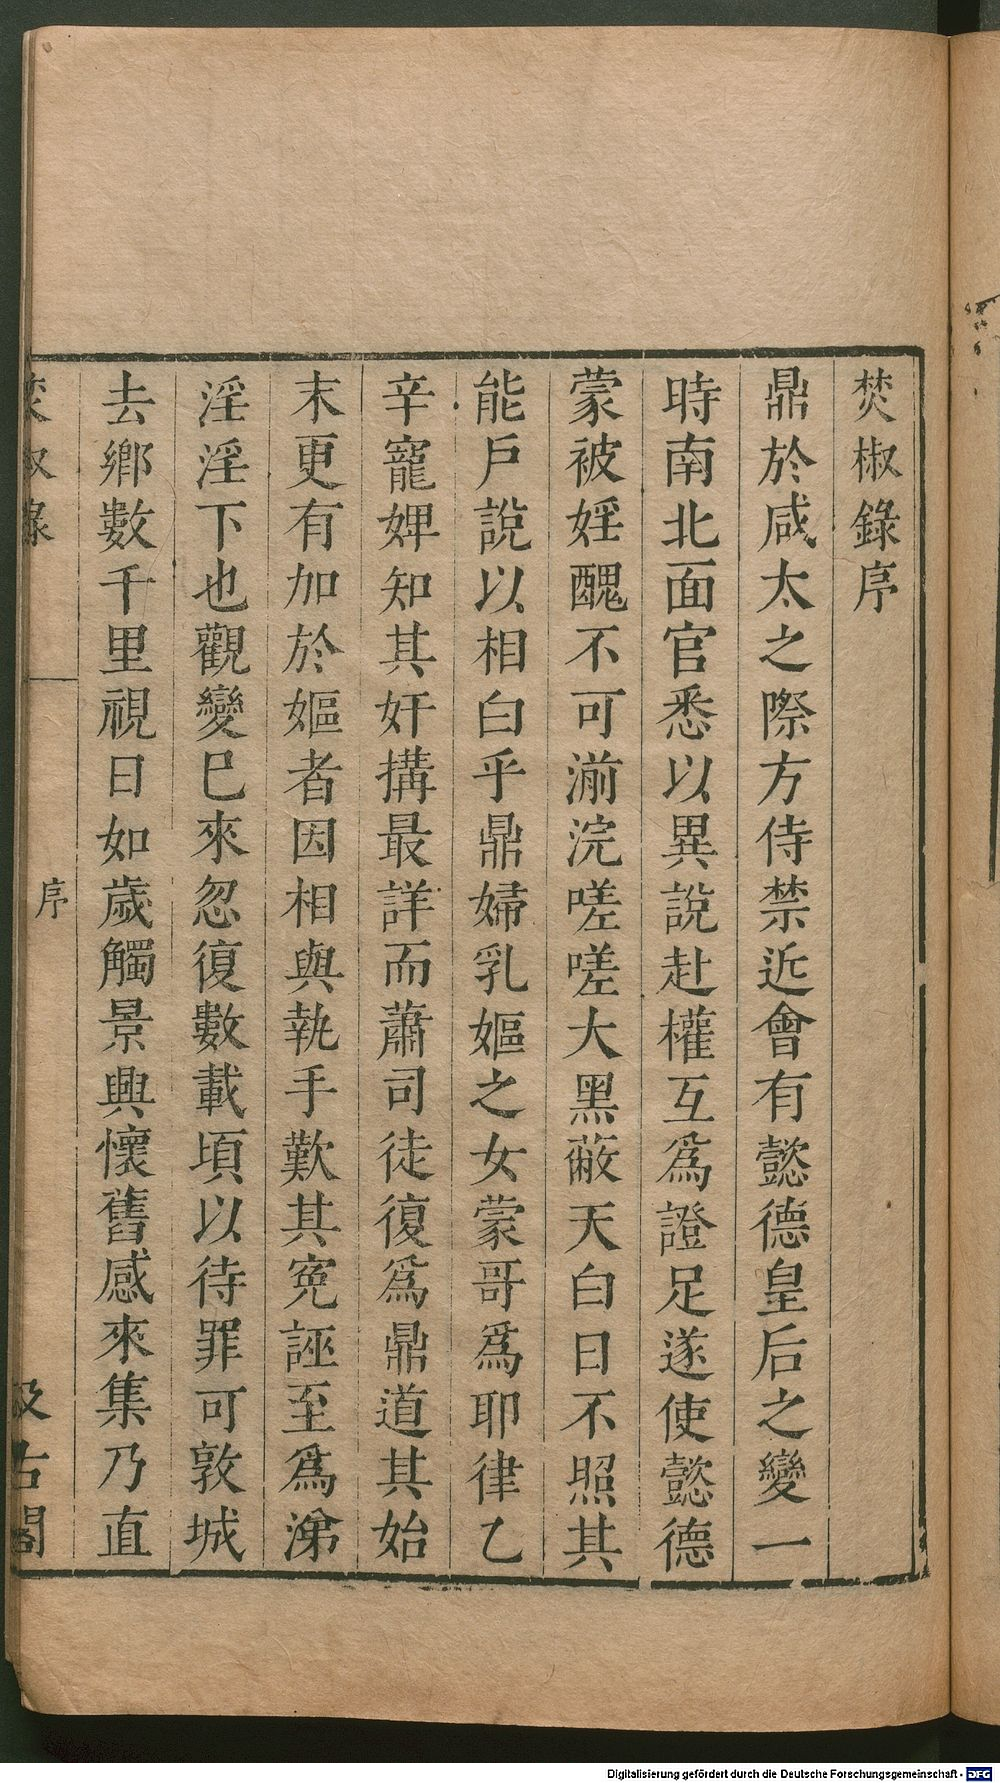 焚椒錄序
鼎於咸太之際方侍禁近會有懿德皇后之變一
時南北面官悉以異說赴權互爲證足遂使懿德
蒙被婬醜不可湔浣嗟嗟大黑蔽天白日不照其
能戶說以相白乎鼎婦乳嫗之女蒙哥爲耶律乙
辛寵婢知其奸搆最詳而蕭司徒復爲鼎道其始
末更有加於嫗者因相與執手歎其寃誣至爲涕
淫淫下也觀變巳來忽復數載頃以待罪可敦城
去鄉數千里視日如歲觸景興懷舊感來集乃直
焚椒錄
序
汲古閣
Digitalisierung gefördert durch die Deutsche Forschungsgemeinschaft - DFG